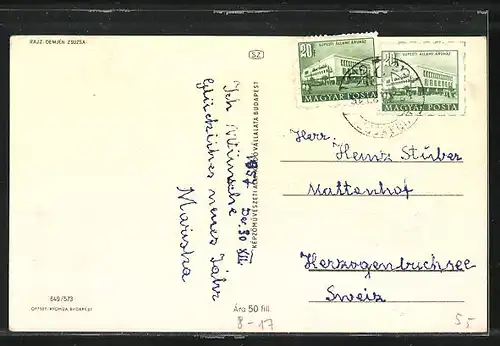 RAJZ: DEMJÉN ZSUZSA
SZ
20f
ÚJPESTI ÁLLAMI ÁRUHÁZ
MAGYAR POSTA
20f
ÚJPESTI ÁLLAMI ÁRUHÁZ
MAGYAR POSTA
Herr.
Heinz Stuber
Mattenhof
Herzogenbuchsee
Sweiz
1957 De. 30 XII
Ich Wünsche
Glückliches neues Jahr
Mariska
KÉPZŐMŰVÉSZETI ALAP KIADÓVÁLLALATA BUDAPEST
649/573
OFFSET-NYOMDA BUDAPEST
Ára 50 fill.
8-17
55